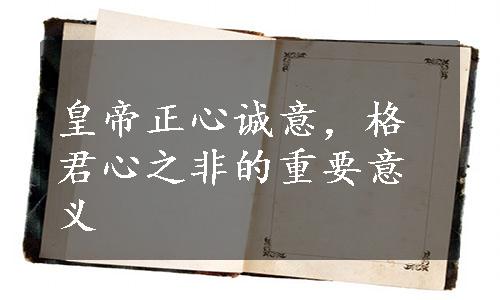 皇帝正心诚意，格
君心之非的重要意
义